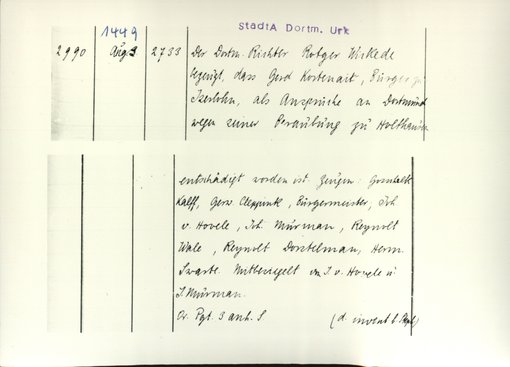 StadtA Dortm. Urk
1449
2990 Aug 3 2733 Der Dortm. Richter Rotger Wickede
bezeugt, dass Gerd Kostenait, Bürger zu
Iserlohn, als Ansprüche an Dortmund
wegen seiner Beraubung zu Holthausen
entschädigt worden ist. Zeugen:
Kalff, Gerw. Cleppink, Bürgermeister, Joh
v. Hovele, Joh. Mürman, Reynolt
Wale, Reynolt Dorstelman, Herm.
Swarte. Mitbesiegelt von J. v. Hovele u
J. Mürman.
Or. Pgt. 3 anh. S (d. invent b. Repl)